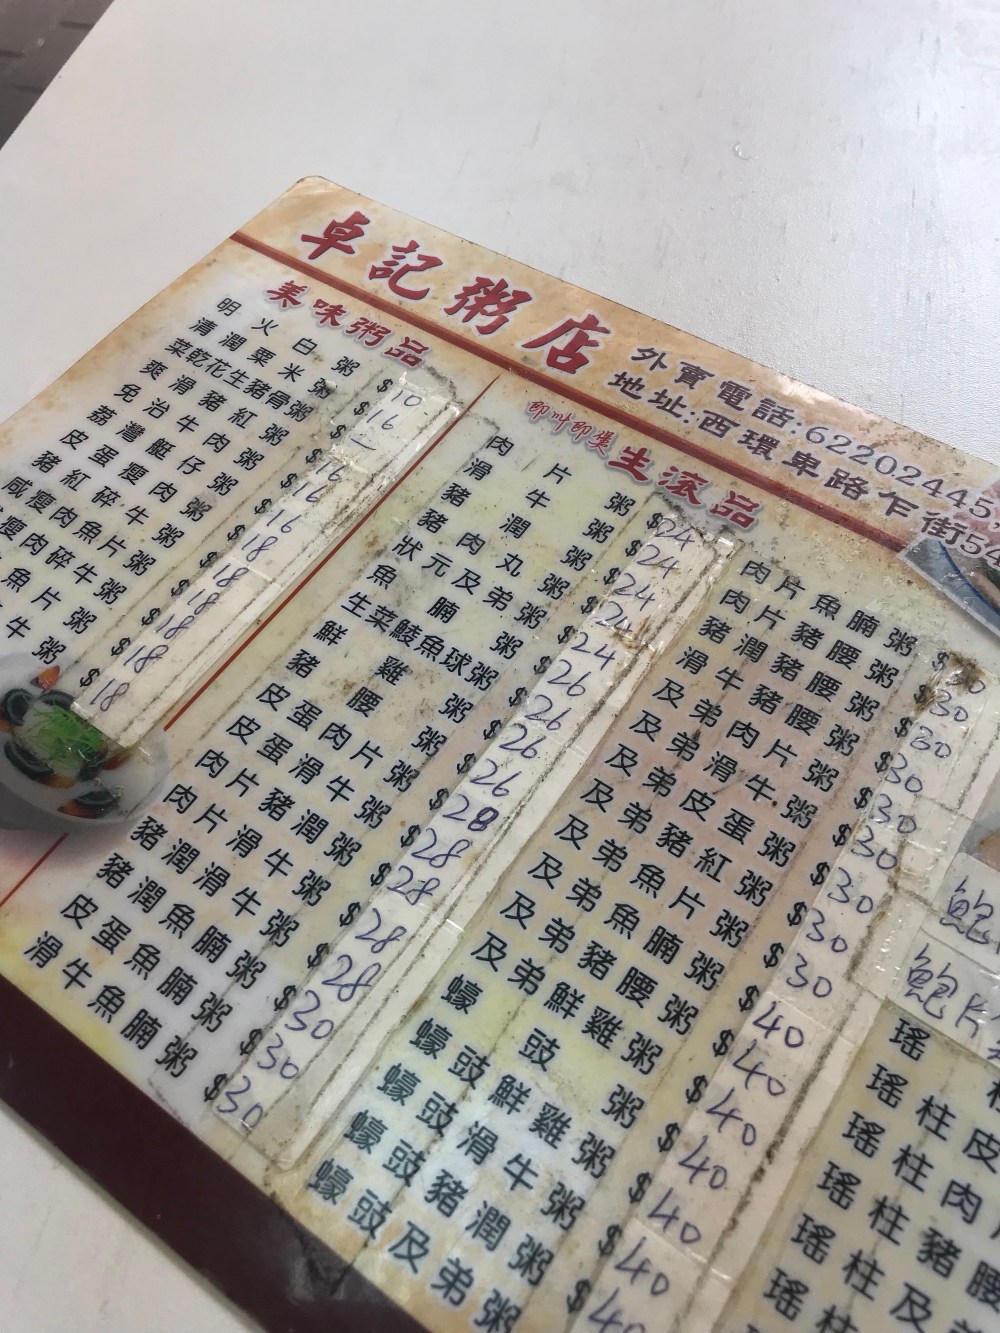 卓記粥店
外賣電話:62202445
地址:西環卑路乍街54
美味粥品
明火白粥 $10
清潤粟米粥 $16
菜乾花生豬骨粥 $—
爽滑豬紅粥 $16
免治牛肉粥 $16
荔灣艇仔粥 $16
皮蛋瘦肉粥 $18
豬紅碎牛粥 $18
咸瘦肉魚片粥 $18
瘦肉碎牛粥 $18
魚片粥 $18
牛粥 $18
即叫即煲 生滾品
肉片粥 $24
滑牛粥 $24
豬潤粥 $24
豬肉丸粥 $24
狀元及弟粥 $24
魚腩粥 $26
生菜鯪魚球粥 $26
鮮雞粥 $26
豬腰粥 $26
皮蛋肉片粥 $28
皮蛋滑牛粥 $28
肉片豬潤粥 $28
肉片滑牛粥 $28
豬潤滑牛粥 $28
豬潤魚腩粥 $30
皮蛋魚腩粥 $30
滑牛魚腩粥 $30
肉片魚腩粥 $
肉片豬腰粥 $30
豬潤豬腰粥 $30
滑牛豬腰粥 $30
及弟肉片粥 $30
及弟滑牛粥 $30
及弟皮蛋粥 $30
及弟豬紅粥 $30
及弟魚片粥 $30
及弟魚腩粥 $40
及弟豬腰粥 $40
及弟鮮雞粥 $40
蠔豉粥 $40
蠔豉鮮雞粥 $40
蠔豉滑牛粥 $40
蠔豉豬潤粥 $40
蠔豉及弟粥
鮑
鮑片
瑤柱
瑤柱皮
瑤柱肉
瑤柱豬腰
瑤柱及
瑤柱